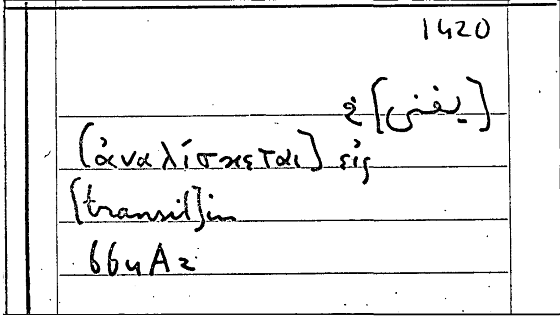 1420
[يفنى] في
[ἀναλίσκεται] εἰς
[transit] in
664A2